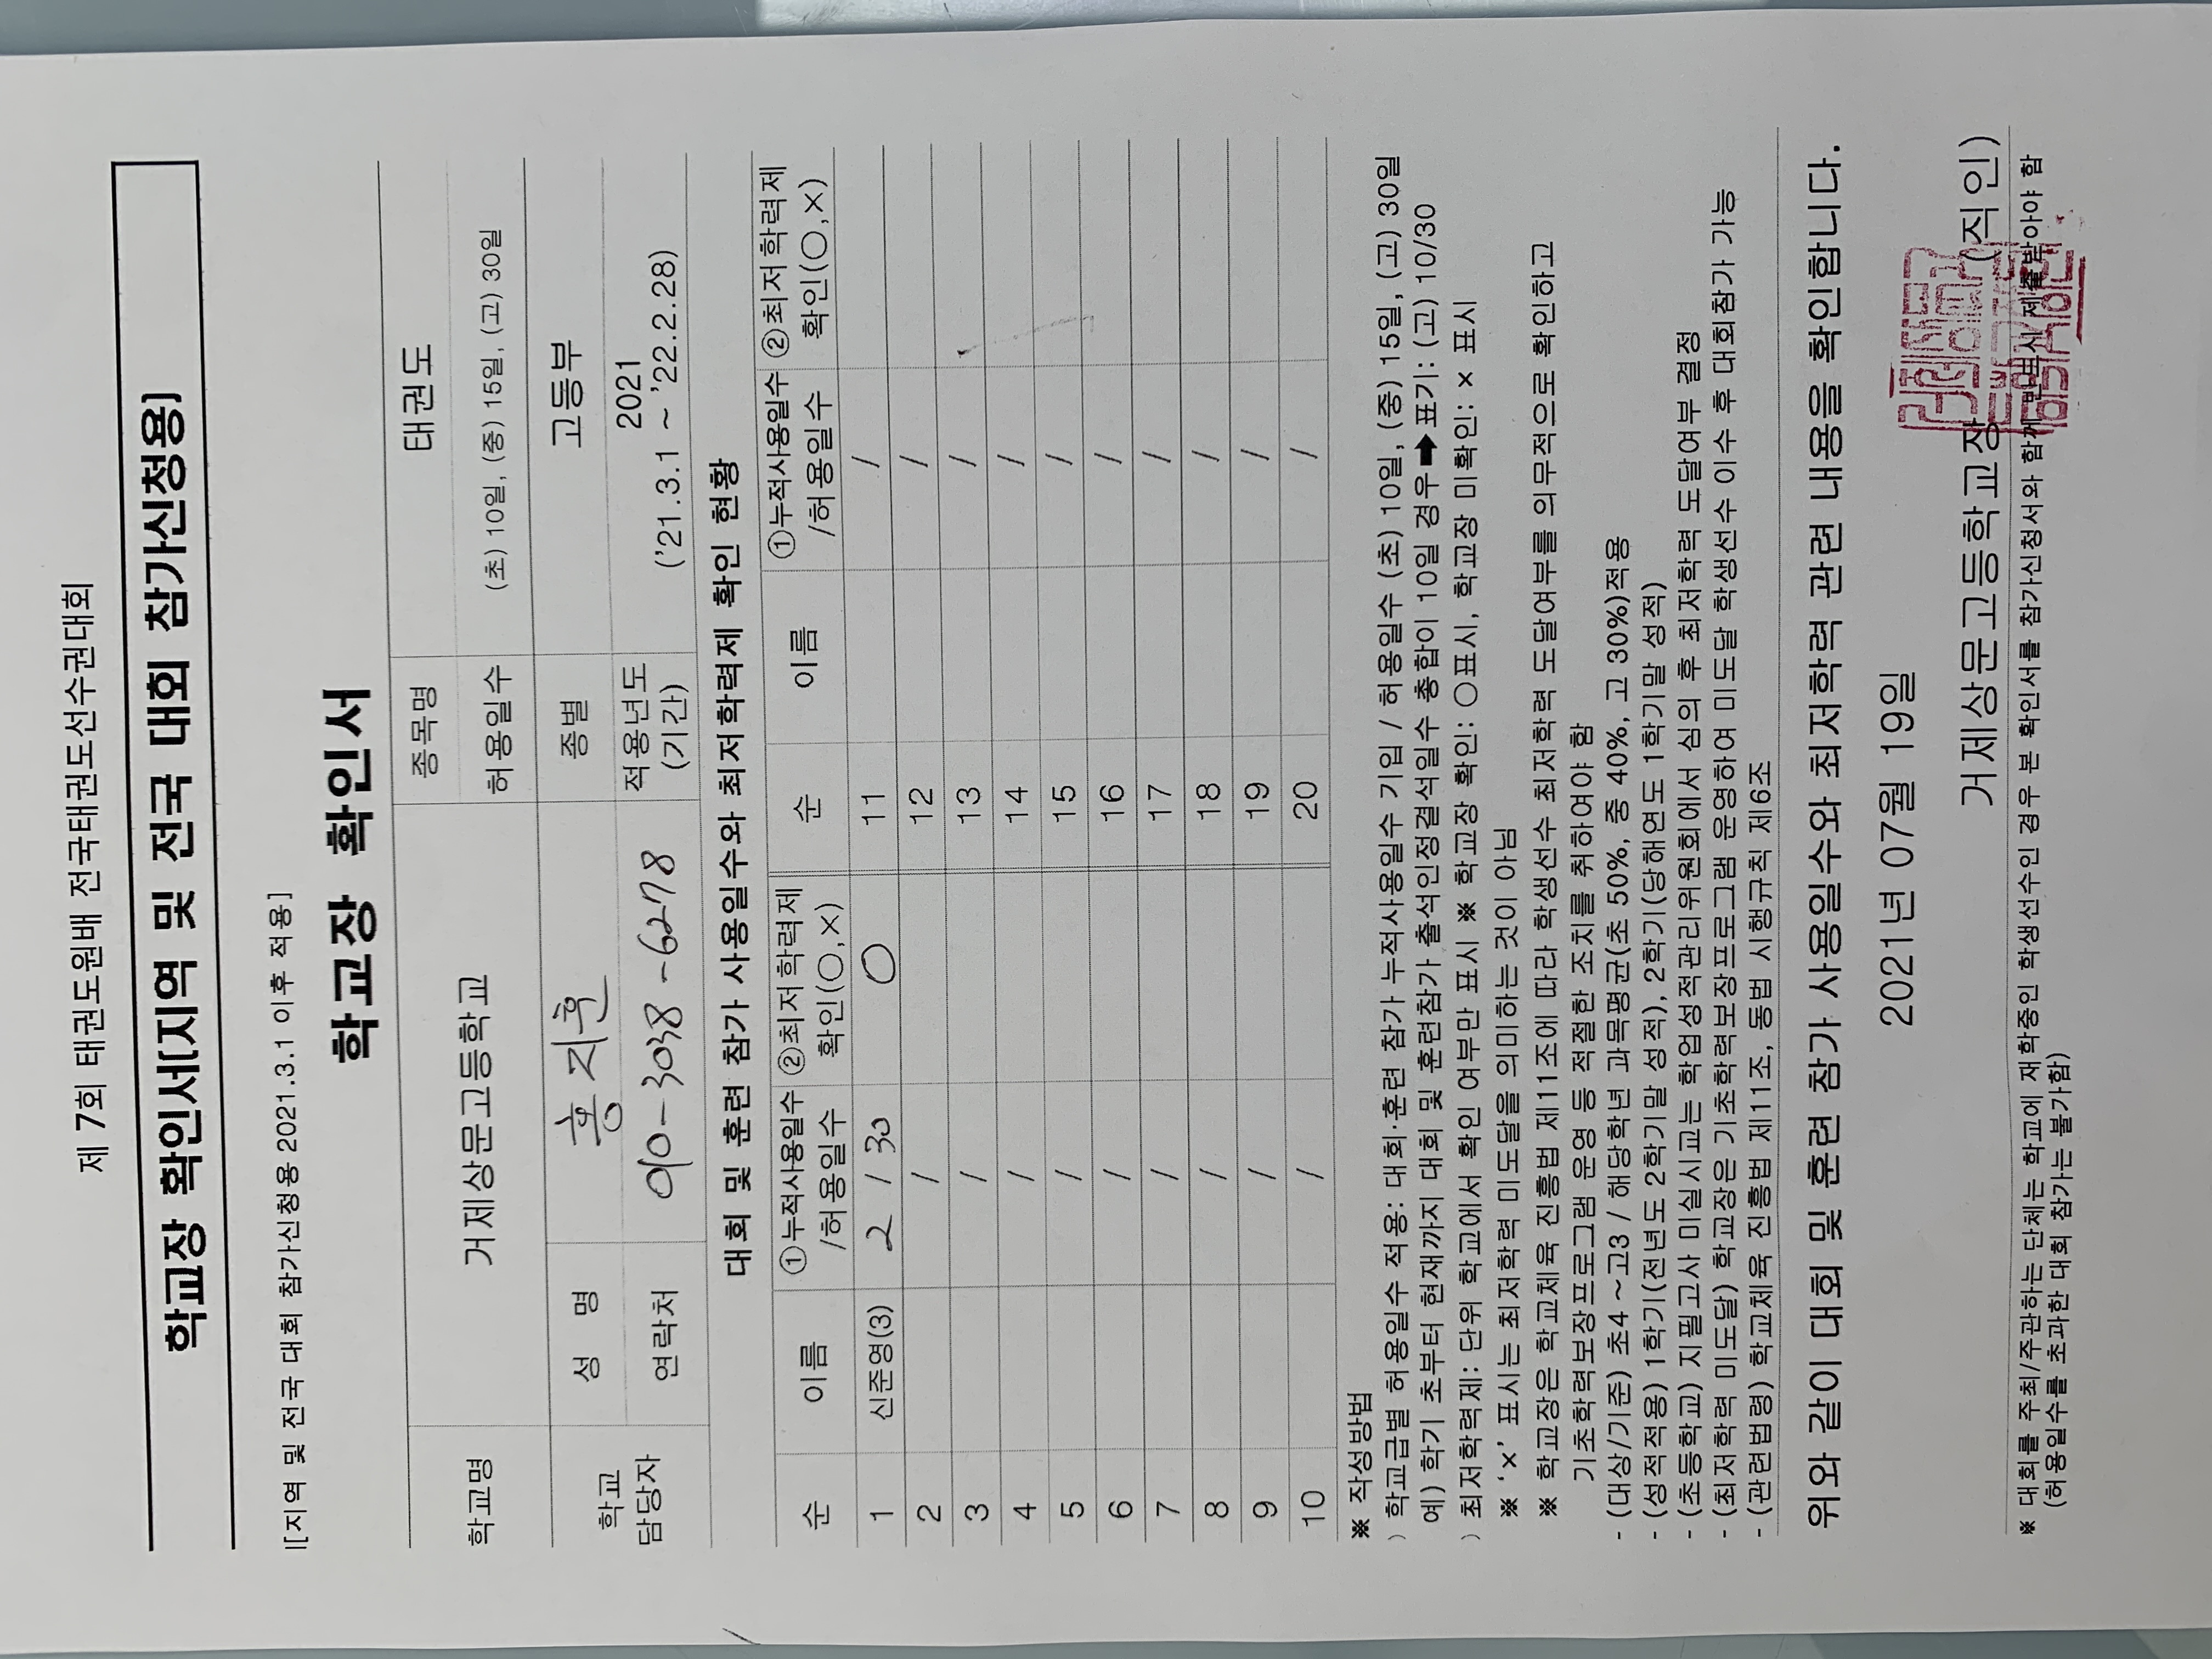 제 7회 태권도원배 전국태권도선수권대회
학교장 확인서[지역 및 전국 대회 참가신청용]
[지역 및 전국 대회 참가신청용 2021.3.1 이후 적용]
학교장 확인서
학교명 거제상문고등학교 종목명 태권도
허용일수 (초) 10일, (중) 15일, (고) 30일
학교 담당자 성 명 홍지훈 종별 고등부
연락처 010-3038-6278 적용년도 (기간) 2021 ('21.3.1 ~ '22.2.28)
대회 및 훈련 참가 사용일수와 최저학력제 확인 현황
순 이름 ①누적사용일수 /허용일수 ②최저학력제 확인(○,×) 순 이름 ①누적사용일수 /허용일수 ②최저학력제 확인(○,×)
1 신준영(3) 2 / 30 ○ 11 /
2 / 12 /
3 / 13 /
4 / 14 /
5 / 15 /
6 / 16 /
7 / 17 /
8 / 18 /
9 / 19 /
10 / 20 /
※ 작성방법
) 학교급별 허용일수 적용: 대회·훈련 참가 누적사용일수 기입 / 허용일수 (초) 10일, (중) 15일, (고) 30일
예) 학기 초부터 현재까지 대회 및 훈련참가 출석인정결석일수 총합이 10일 경우 ➡ 표기: (고) 10/30
) 최저학력제: 단위 학교에서 확인 여부만 표시 ※ 학교장 확인: ○표시, 학교장 미확인: × 표시
※ '×' 표시는 최저학력 미도달을 의미하는 것이 아님
※ 학교장은 학교체육 진흥법 제11조에 따라 학생선수 최저학력 도달여부를 의무적으로 확인하고
기초학력보장프로그램 운영 등 적절한 조치를 취하여야 함
- (대상/기준) 초4 ~고3 / 해당학년 과목평균(초 50%, 중 40%, 고 30%)적용
- (성적적용) 1학기(전년도 2학기말 성적), 2학기(당해연도 1학기말 성적)
- (초등학교) 지필고사 미실시교는 학업성적관리위원회에서 심의 후 최저학력 도달여부 결정
- (최저학력 미도달) 학교장은 기초학력보장프로그램 운영하여 미도달 학생선수 이수 후 대회참가 가능
- (관련법령) 학교체육 진흥법 제11조, 동법 시행규칙 제6조
위와 같이 대회 및 훈련 참가 사용일수와 최저학력 관련 내용을 확인합니다.
2021년 07월 19일
거제상문고등학교장 (직인)
※ 대회를 주최/주관하는 단체는 학교에 재학중인 학생선수인 경우 본 확인서를 참가신청서와 함께 반드시 제출받아야 함
(허용일수를 초과한 대회 참가는 불가함)